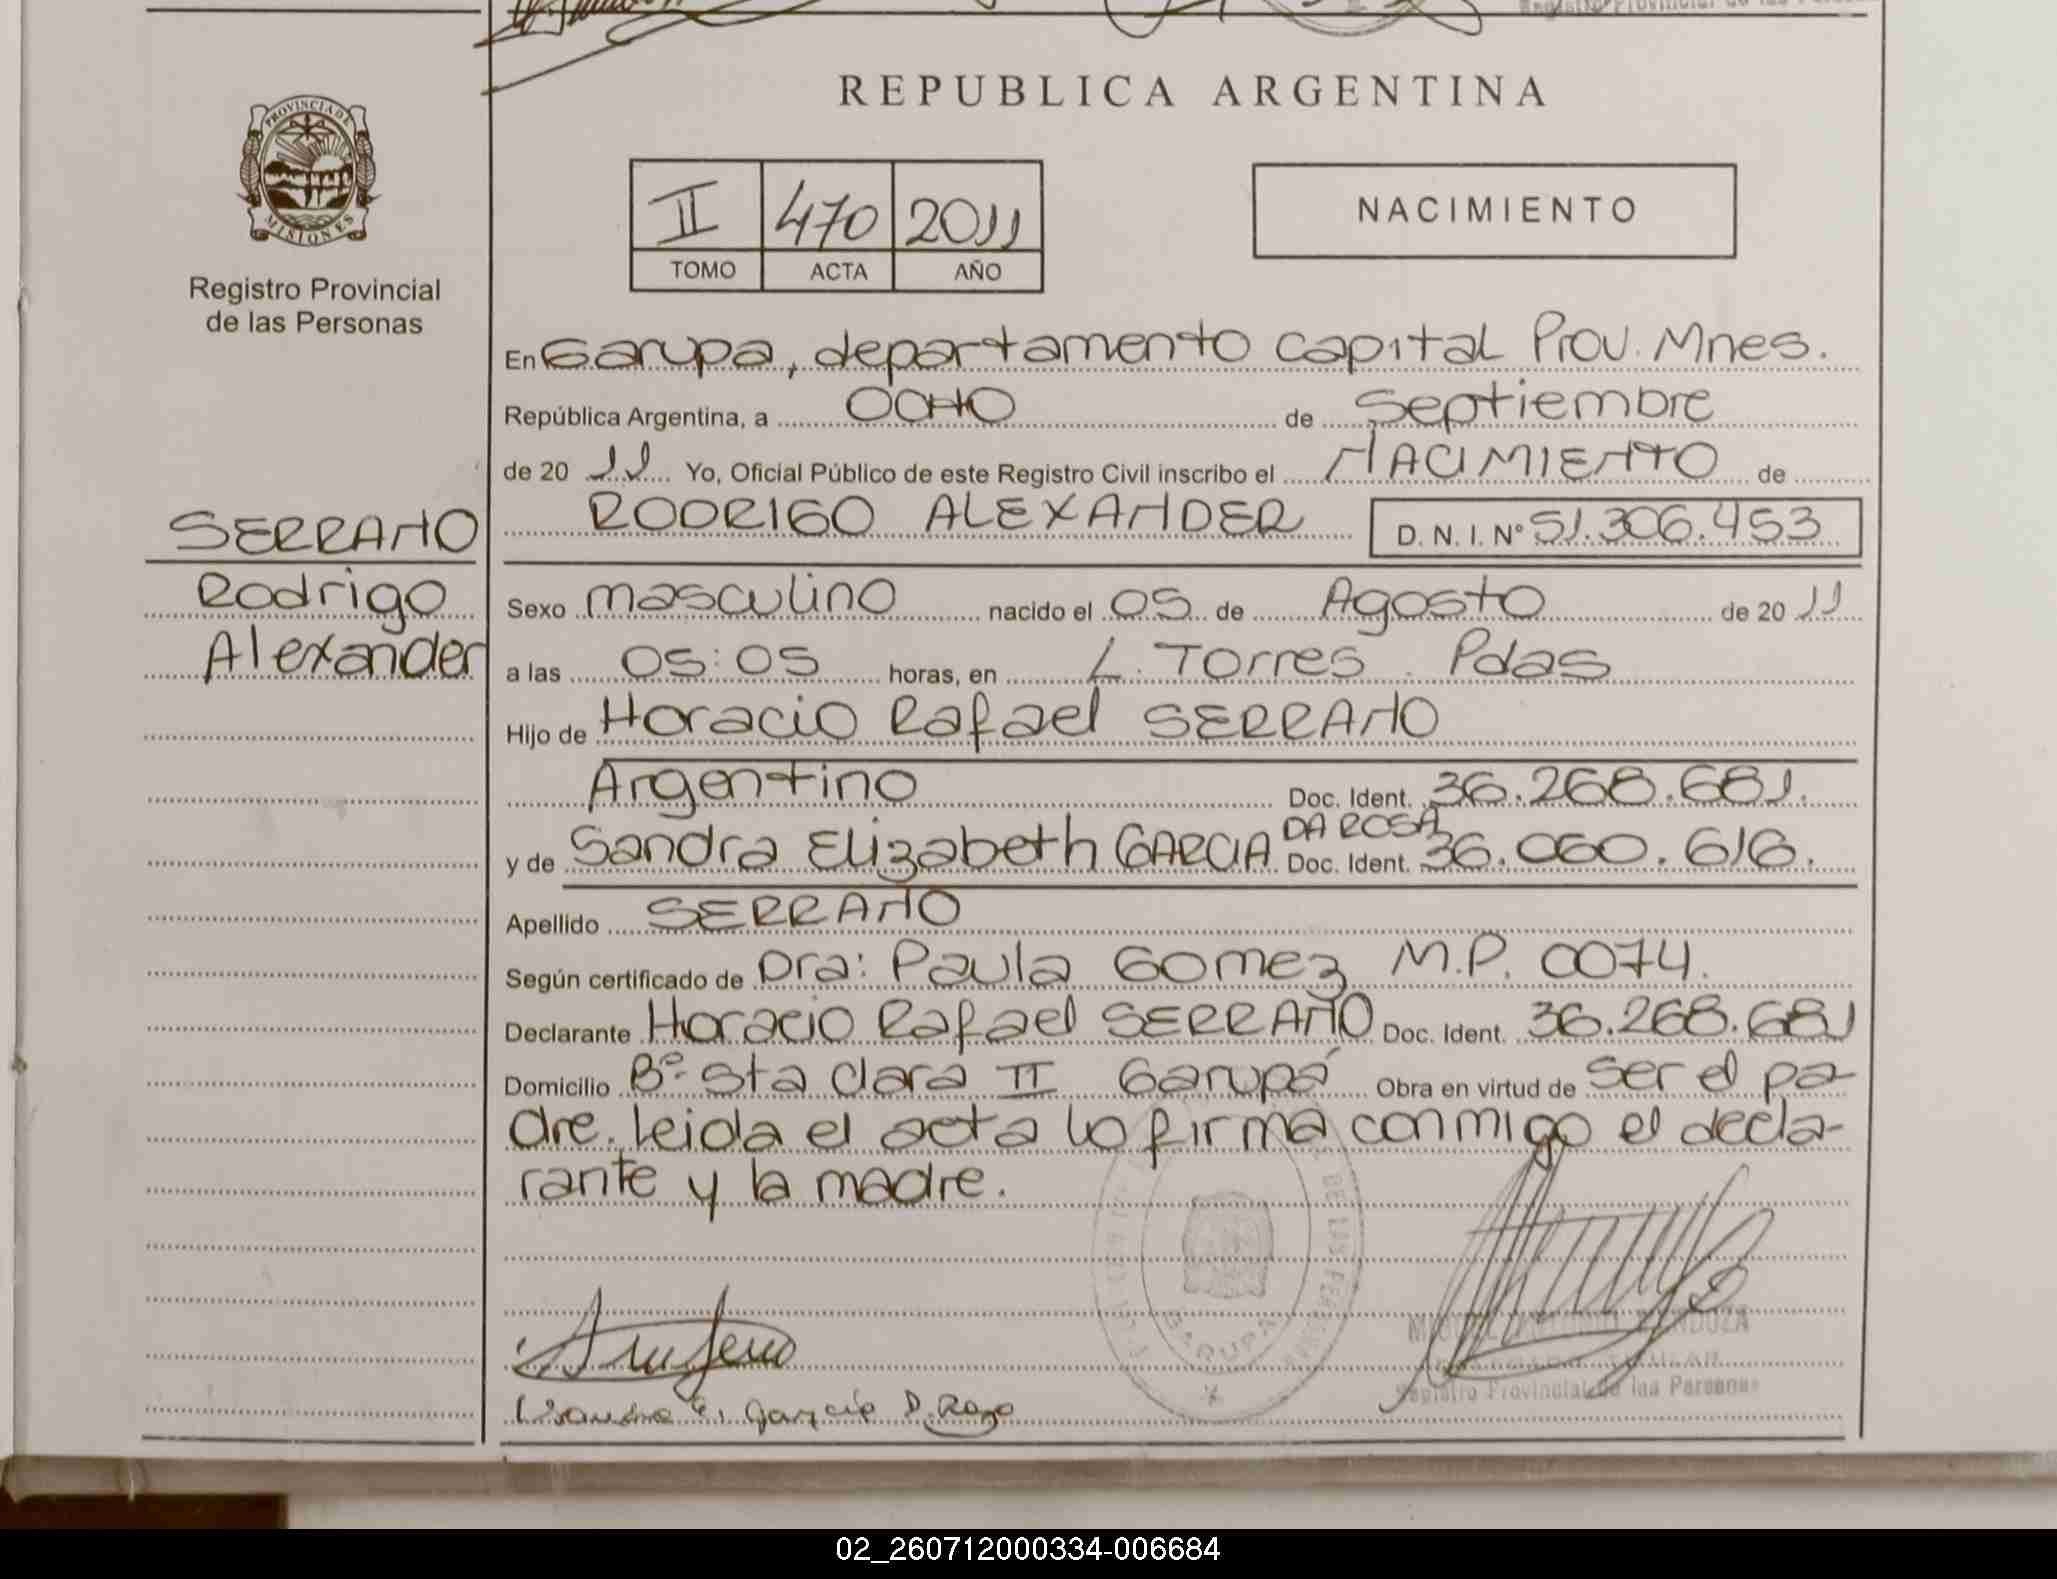 REPUBLICA ARGENTINA
PROVINCIA DE
MISIONES
Registro Provincial
de las Personas
II 470 2011
TOMO ACTA AÑO
NACIMIENTO
En Garupa, departamento Capital Prov. Mnes.
República Argentina, a OCHO de Septiembre
de 20 11 Yo, Oficial Público de este Registro Civil inscribo el NACIMIENTO de
SERRANO
Rodrigo
Alexander
RODRIGO ALEXANDER D. N. I. Nº 51.306.453
Sexo masculino nacido el 05 de Agosto de 20 11
a las 05:05 horas, en L. Torres Pdas
Hijo de Horacio Rafael SERRANO
Argentino Doc. Ident. 36.268.681.
y de Sandra Elizabeth GARCIA DA ROSA Doc. Ident. 36.060.616.
Apellido SERRANO
Según certificado de Dra: Paula Gomez M.P. 0074.
Declarante Horacio Rafael SERRANO Doc. Ident. 36.268.681
Domicilio Bº Sta Clara II Garupá Obra en virtud de ser el pa-
dre. leida el acta lo firma conmigo el decla-
rante y la madre.
GARUPA
DE LAS PERSONAS
MENDOZA
TITULAR
Registro Provincial de las Personas
02_260712000334-006684